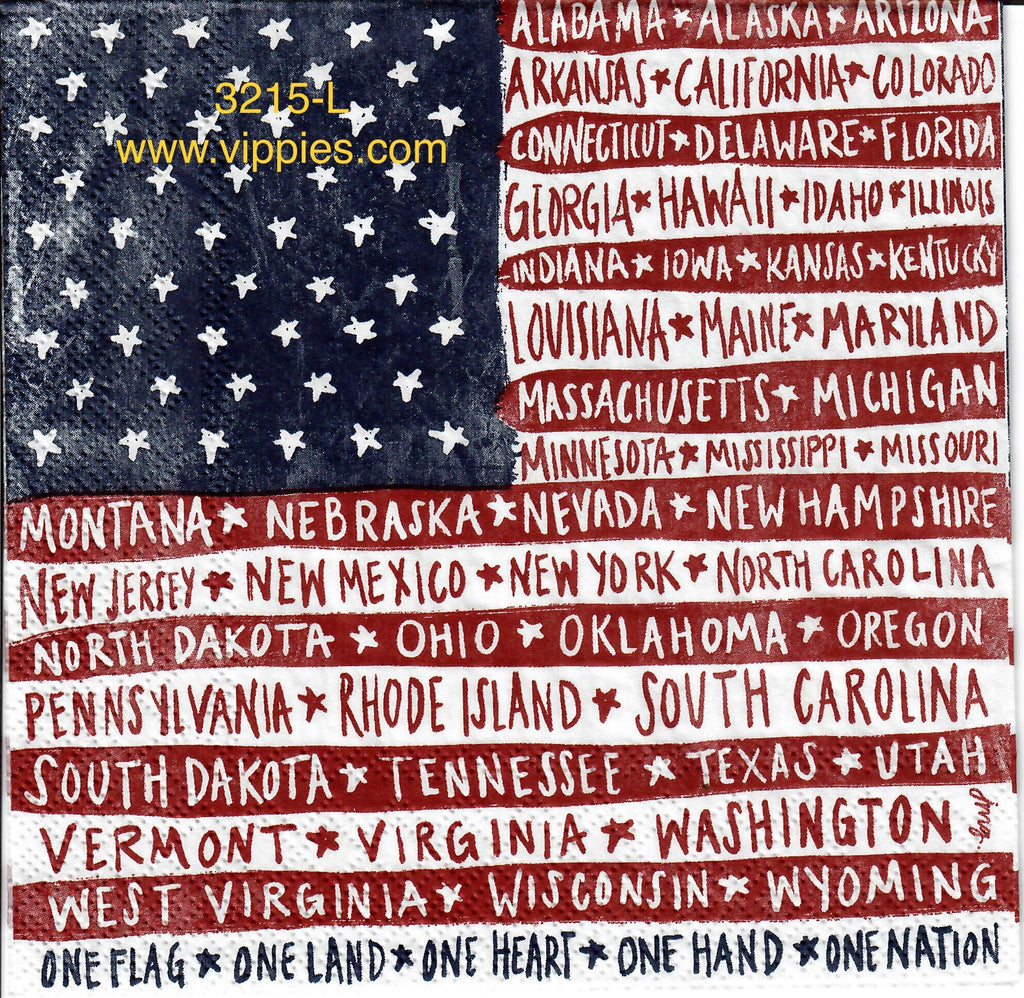 ALABAMA ★ ALASKA ★ ARIZONA
3215-L
www.vippies.com
ARKANSAS ★ CALIFORNIA ★ COLORADO
CONNECTICUT ★ DELAWARE ★ FLORIDA
GEORGIA ★ HAWAII ★ IDAHO ★ ILLINOIS
INDIANA ★ IOWA ★ KANSAS ★ KENTUCKY
LOUISIANA ★ MAINE ★ MARYLAND
MASSACHUSETTS ★ MICHIGAN
MINNESOTA ★ MISSISSIPPI ★ MISSOURI
MONTANA ★ NEBRASKA ★ NEVADA ★ NEW HAMPSHIRE
NEW JERSEY ★ NEW MEXICO ★ NEW YORK ★ NORTH CAROLINA
NORTH DAKOTA ★ OHIO ★ OKLAHOMA ★ OREGON
PENNSYLVANIA ★ RHODE ISLAND ★ SOUTH CAROLINA
SOUTH DAKOTA ★ TENNESSEE ★ TEXAS ★ UTAH
VERMONT ★ VIRGINIA ★ WASHINGTON
WEST VIRGINIA ★ WISCONSIN ★ WYOMING
ONE FLAG ★ ONE LAND ★ ONE HEART ★ ONE HAND ★ ONE NATION